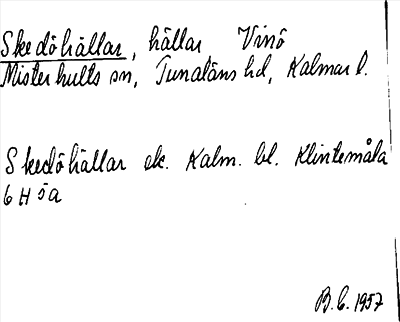 Skedöhällar, hällar Vinö
Misterhults sn, Tunaläns hd, Kalmar l.
Skedöhällar ek. Kalm. bl. Klintemåla
6 H 5a
B.C. 1957